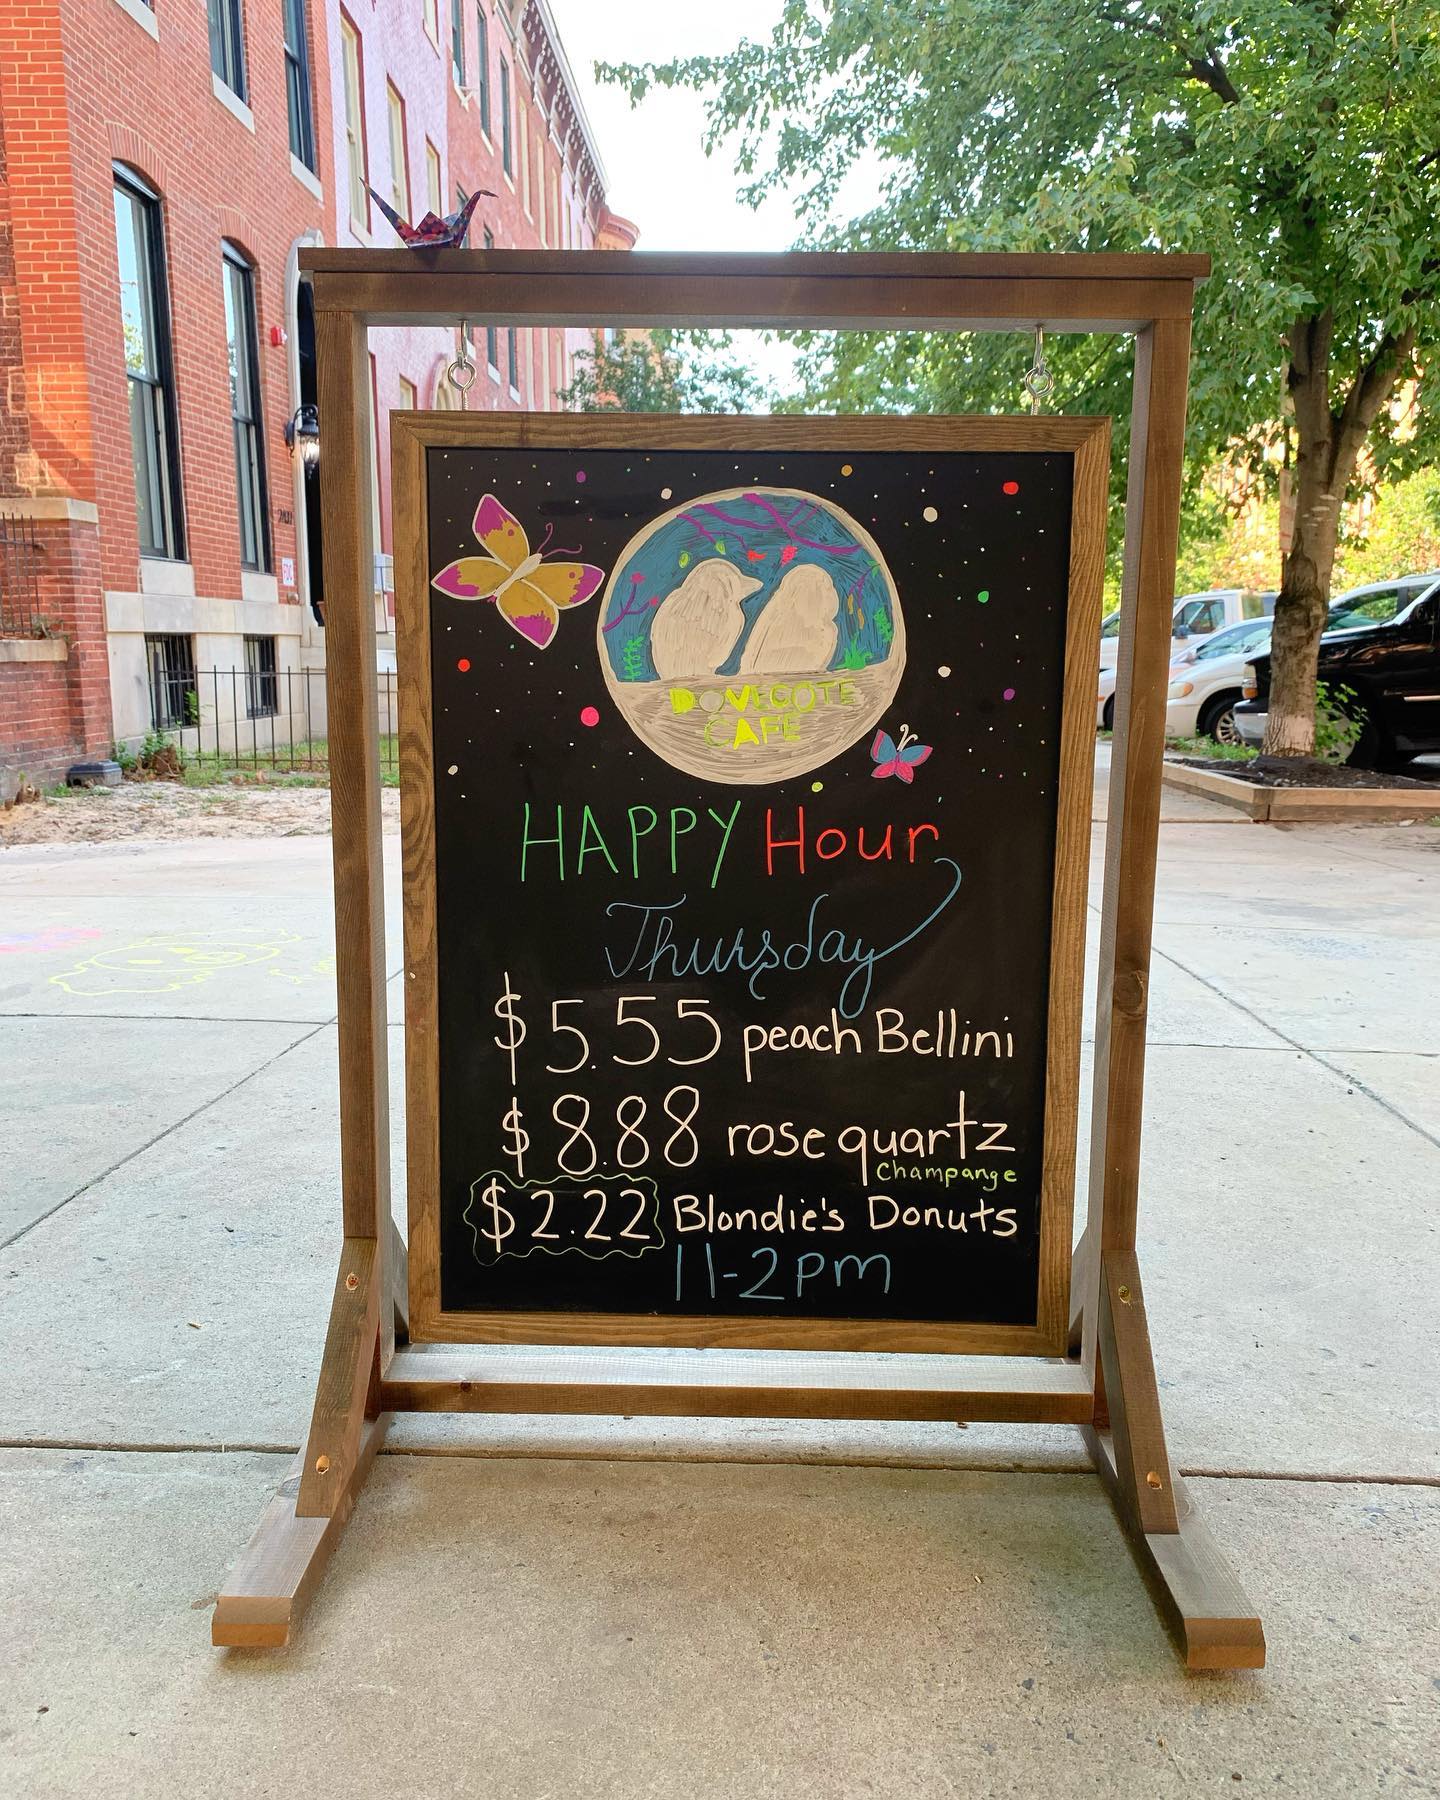 DOVECOTE
CAFE
HAPPY Hour
Thursday
$5.55 peach Bellini
$8.88 rose quartz
Champange
$2.22 Blondie's Donuts
11-2pm